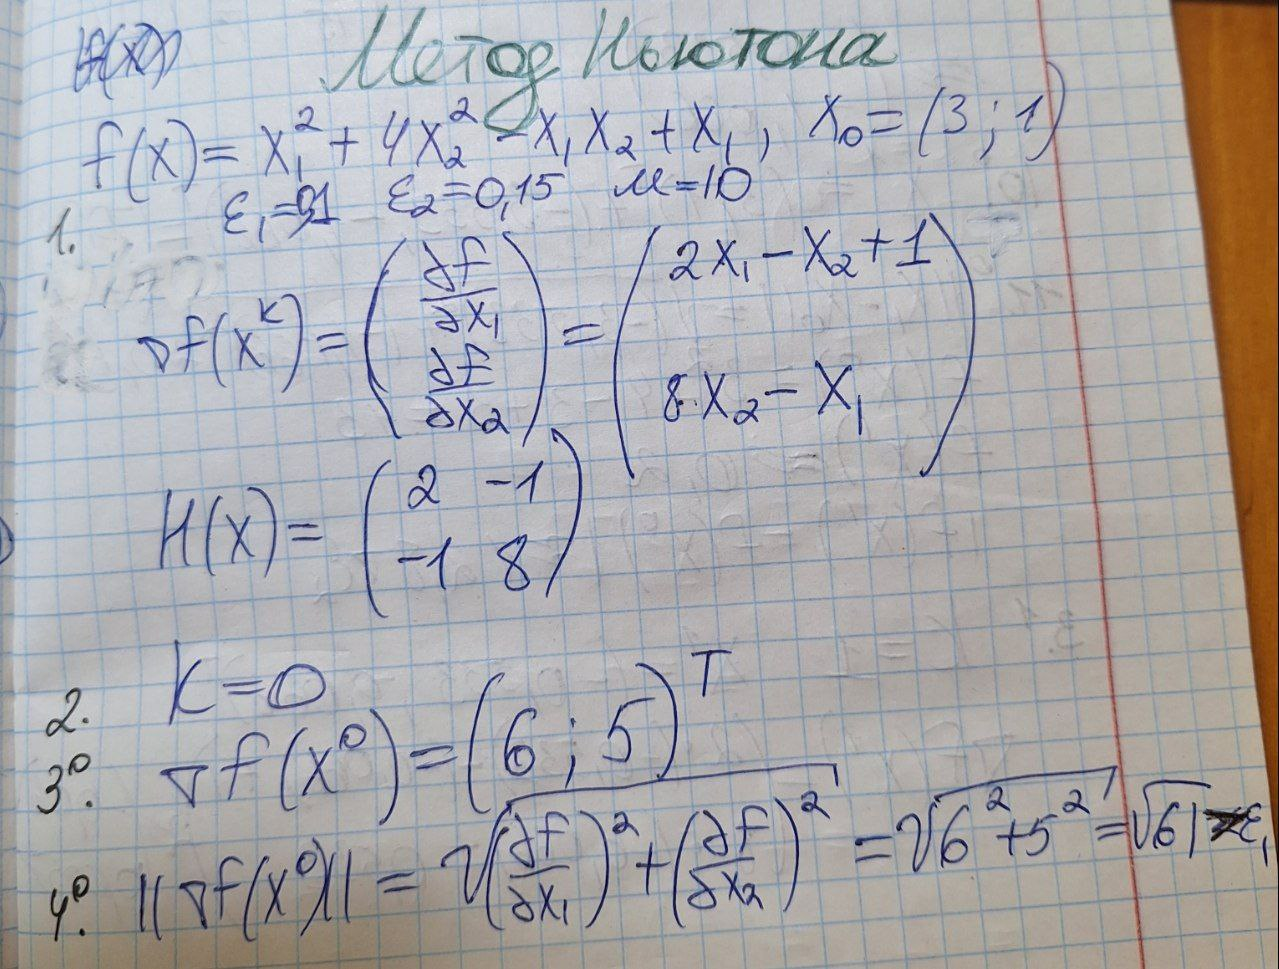 H(x)
Метод Ньютона
f(x) = x₁² + 4x₂² - x₁x₂ + x₁, x₀ = (3; 1)
ε₁=0,1 ε₂=0,15 M=10
1.
∇f(xᵏ) = (∂f/∂x₁ ∂f/∂x₂) = (2x₁ - x₂ + 1 8·x₂ - x₁)
H(x) = (2 -1
-1 8)
2. K=0
3⁰. ∇f(x⁰) = (6; 5)ᵀ
4⁰. ||∇f(x⁰)|| = √((∂f/∂x₁)² + (∂f/∂x₂)²) = √(6²+5²) = √61 > ε₁